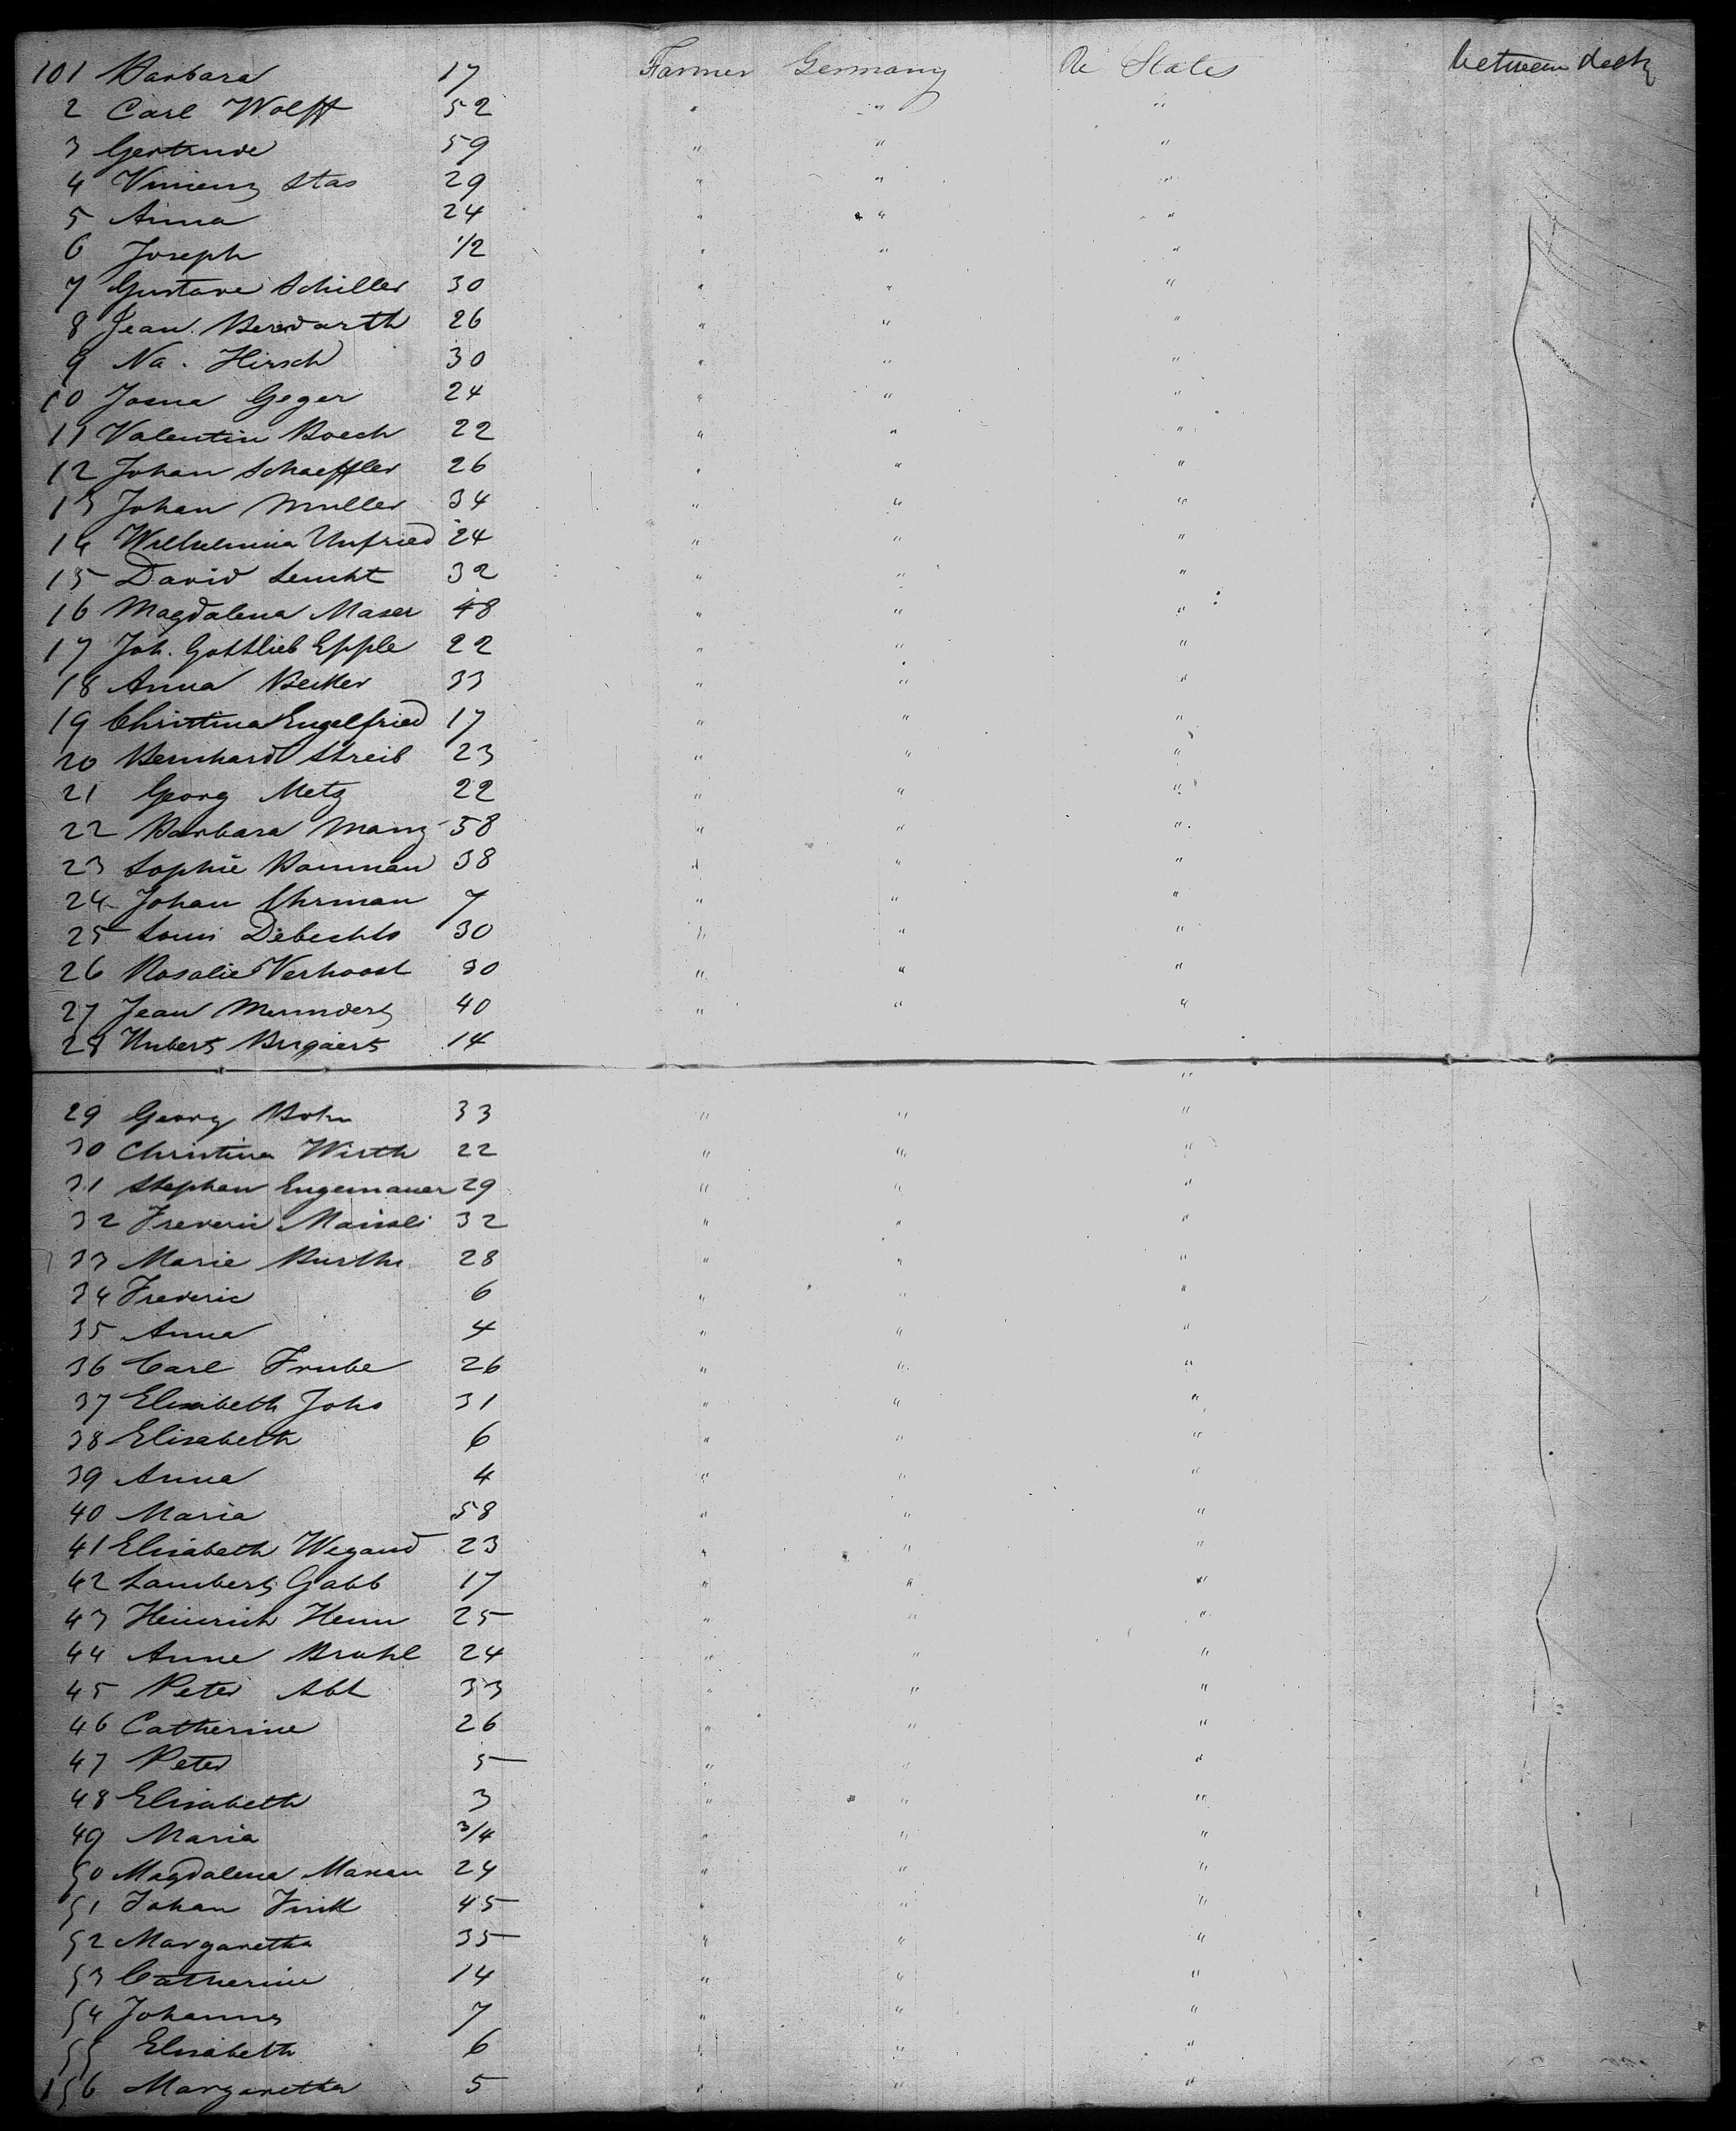 101 Barbara 17 Farmer Germany Un States between deck
2 Carl Wolff 52 " " "
3 Gertrude 59 " " "
4 Stas 29 " " "
5 Anna 24 " " "
6 Joseph 1/2 " " "
7 Gustave Schiller 30 " " "
8 Jean 26 " " "
9 Na. Hirsch 30 " " "
10 Geger 24 " " "
11 Valentin Boech 22 " " "
12 Johan Schaeffler 26 " " "
13 Johan Muller 34 " " "
14 Wilhelmina Unfried 24 " " "
15 David Leucht 32 " " "
16 Magdalena Maser 48 " " "
17 Joh. Gottlieb Epple 22 " " "
18 Anna Becker 33 " " "
19 Christina Engelfried 17 " " "
20 Bernhard Streib 23 " " "
21 Georg Metz 22 " " "
22 Barbara Manz 58 " " "
23 Sophie Bauman 38 " " "
24 Johan Ehrman 7 " " "
25 Louis Debechts 30 " " "
26 Rosalie Verhoost 30 " " "
27 Jean 40 " " "
28 Hubert Bugaerts 14
"
29 Georg Bohn 33 " " "
30 Christina Wirth 22 " " "
31 Stephan 29 " " "
32 Frederic 32 " " "
33 Marie Burthe 28 " " "
34 Frederic 6 " " "
35 Anna 4 " " "
36 Carl Frube 26 " " "
37 Elisabeth Johs 31 " " "
38 Elisabeth 6 " " "
39 Anna 4 " " "
40 Maria 58 " " "
41 Elisabeth Wegand 23 " " "
42 Lambert Gabb 17 " " "
43 Heinrich Henn 25 " " "
44 Anne Bruhl 24 " " "
45 Peter Abt 33 " " "
46 Catherine 26 " " "
47 Peter 5 " " "
48 Elisabeth 3 " " "
49 Maria 3/4 " " "
50 Magdalena 24 " " "
51 Johan Fink 45 " " "
52 Margaretha 35 " " "
53 Catherine 14 " " "
54 Johannes 7 " " "
55 Elisabeth 6 " " "
156 Margaretha 5 " " "